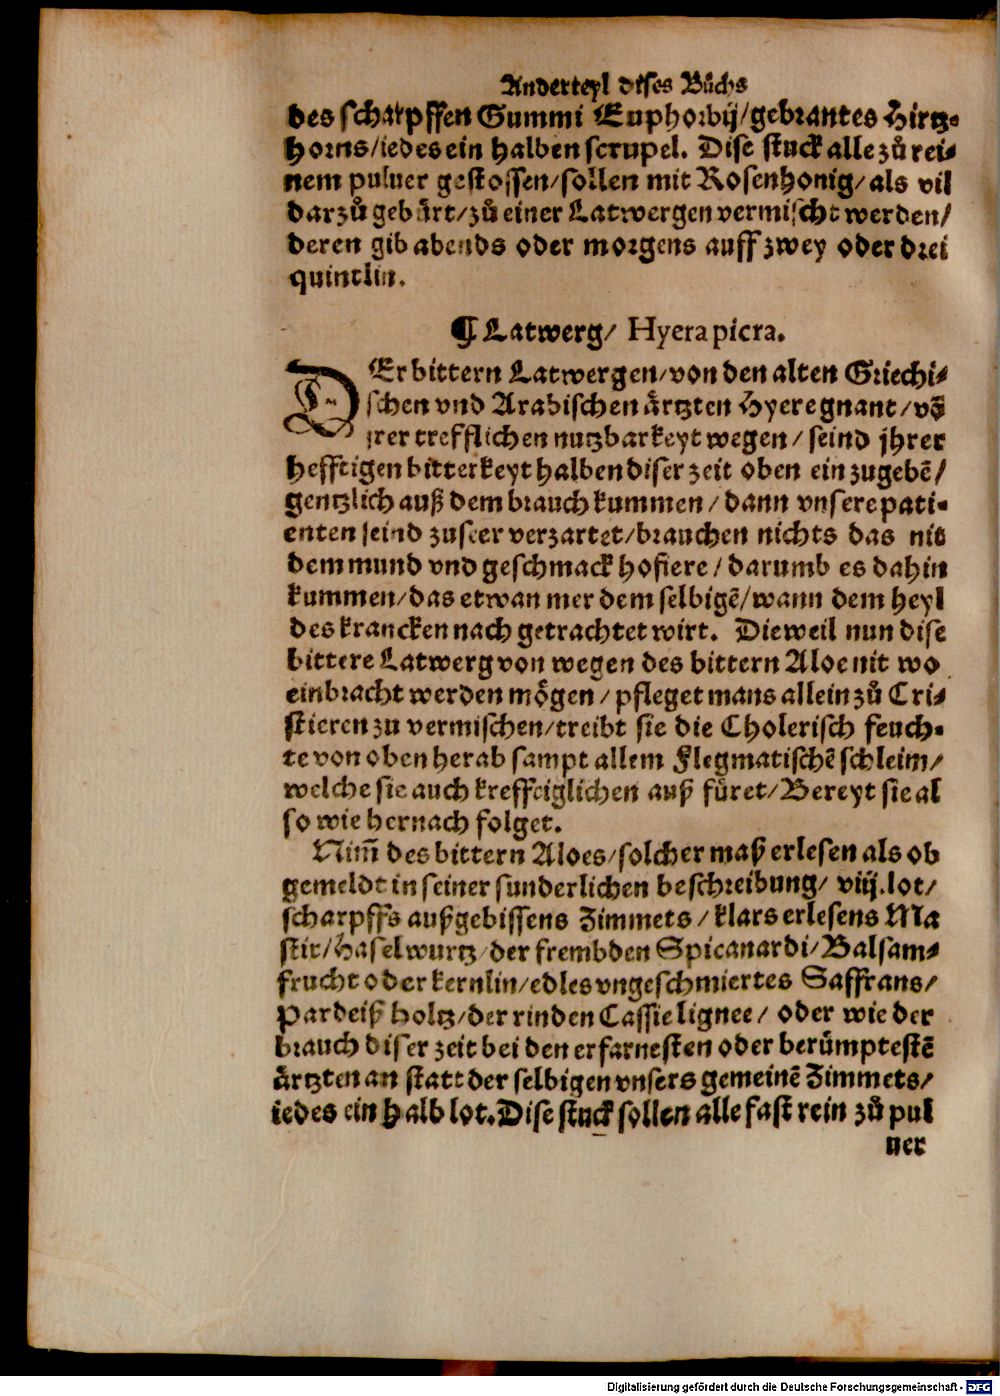 Anderteyl dises Bůchs
des scharpffen Gummi Euphorbij/gebrantes Hirtz-
horns/iedes ein halben scrupel. Dise stuck alle zů rei-
nem puluer gestossen/sollen mit Rosenhonig/als vil
darzů gebürt/zů einer Latwergen vermischt werden/
deren gib abends oder morgens auff zwey oder drei
quintlin.
¶ Latwerg/ Hyera picra.
DEr bittern Latwergen/von den alten Griechi-
schen vnd Arabischen ärtzten Hyere gnant/vō
jrer trefflichen nutzbarkeyt wegen/seind jhrer
hefftigen bitterkeyt halben diser zeit oben einzugebē/
gentzlich auß dem brauch kummen/dann vnsere pati-
enten seind zuseer verzartet/brauchen nichts das nit
dem mund vnd geschmack hofiere/darumb es dahin
kummen/das etwan mer dem selbigē/wann dem heyl
des krancken nach getrachtet wirt. Dieweil nun dise
bittere Latwerg von wegen des bittern Aloe nit wo
einbracht werden mögen/pfleget mans allein zů Cri-
stieren zu vermischen/treibt sie die Cholerisch feuch-
te von oben herab sampt allem Flegmatischē schleim/
welche sie auch kreffciglichen auß füret/Bereyt sie al
so wie hernach folget.
Nim̄ des bittern Aloes/solcher maß erlesen als ob
gemeldt in seiner sunderlichen beschreibung/viij.lot/
scharpffs außgebissens Zimmets/klars erlesens Ma
stix/Haselwurtz/der frembden Spicanardi/Balsam-
frucht oder kernlin/edles vngeschmiertes Saffrans/
Pardeiß holtz/der rinden Cassie lignee/oder wie der
brauch diser zeit bei den erfarnesten oder berümptestē
ärtzten an statt der selbigen vnsers gemeinē Zimmets/
iedes ein halb lot. Dise stuck sollen alle fast rein zů pul
uer
Digitalisierung gefördert durch die Deutsche Forschungsgemeinschaft - DFG